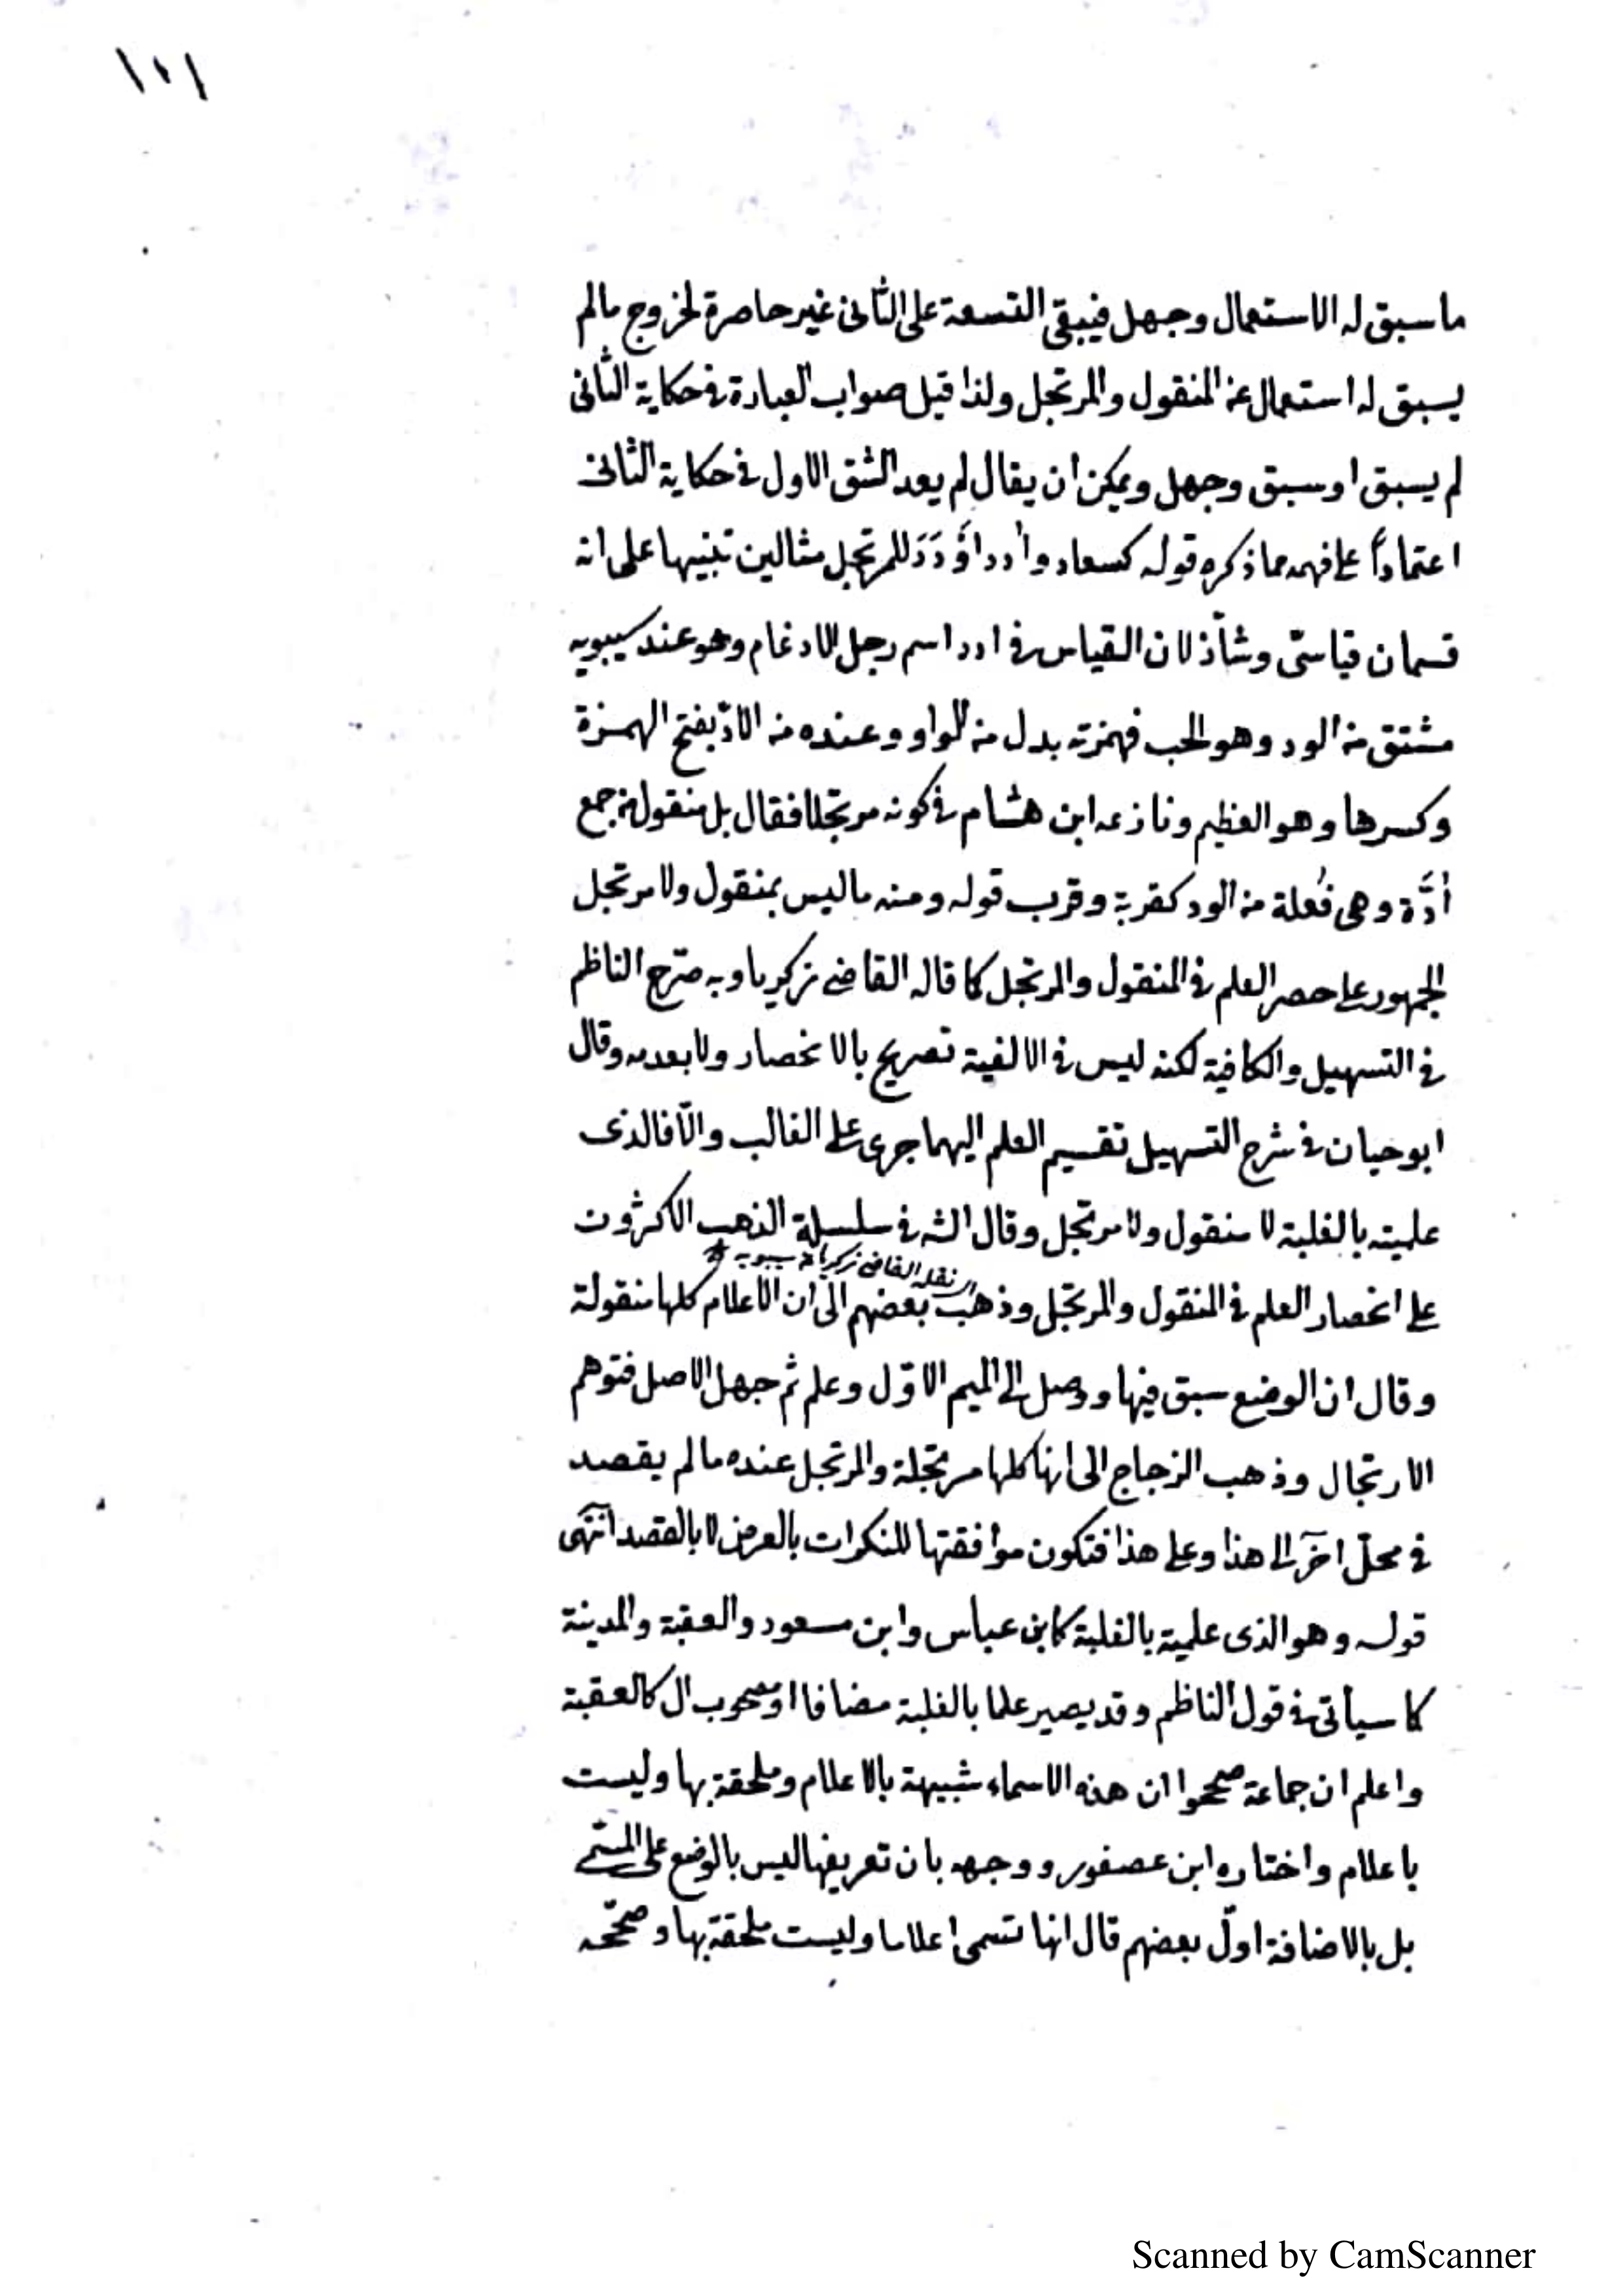 ١٠١
ما سبق له الاستعمال وجهل فيبقى القسمة على الثانى غير حاصرة لخروج مالم
يسبق له استعمال عن المنقول والمرتجل ولذا قيل صواب العبارة فى حكاية الثانى
لم يسبق او سبق وجهل ويمكن ان يقال لم يعد الشق الاول فى حكاية الثانى
اعتماداً على فهمه مما ذكره قوله كسعاد وأدد اوْرَدَ للمرتجل مثالين تنبيها على انه
قسمان قياسىّ وشاذّ لان القياس فى ادد اسم رجل الادغام وهو عند سيبويه
مشتق من الود وهو الحب فهمزته بدل من الواو وعنده من الادّ بفتح الهمزة
وكسرها وهو العظيم ونازعه ابن هشام فى كونه مرتجلا فقال بل منقول من جمع
أدّة وهى فُعلة من الود كقربة وقرب قوله ومنه ماليس بمنقول ولا مرتجل
الجمهور على حصر العلم فى المنقول والمرتجل كما قاله القاضى زكريا وبه صرّح الناظم
فى التسهيل والكافية لكنه ليس فى الالفية تصريح بالانحصار ولا بعدمه وقال
ابوحيان فى شرح التسهيل تقسيم العلم اليهما جرى على الغالب والّا فالذى
علميته بالغلبة لا منقول ولا مرتجل وقال الشه فى سلسلة الذهب الاكثرون
نقله القاضى زكريا عن سيبويه
على انحصار العلم فى المنقول والمرتجل وذهب بعضهم الى ان الاعلام كلها منقولة
وقال ان الوضع سبق فيها ووصل الى الميم الاوّل وعلم ثم جهل الاصل فتوهم
الارتجال وذهب الزجاج الى انها كلها مرتجلة والمرتجل عنده مالم يقصد
فى محلّ اخر الى هذا وعلى هذا فتكون موافقتها للنكرات بالعرض لا بالقصد انتهى
قوله وهو الذى علميته بالغلبة كابن عباس وابن مسعود والعقبة والمدينة
كما سيأتى فى قول الناظم وقد يصير علما بالغلبة مضافا او مصحوب ال كالعقبة
واعلم ان جماعة صححوا ان هذه الاسماء شبيهة بالاعلام وملحقة بها وليست
باعلام واختاره ابن عصفور ووجهه بان تعريفها ليس بالوضع على المسمّى
بل بالاضافة اول بعضهم قال انها تسمى اعلاما وليست ملحقة بها وصحّحه
Scanned by CamScanner